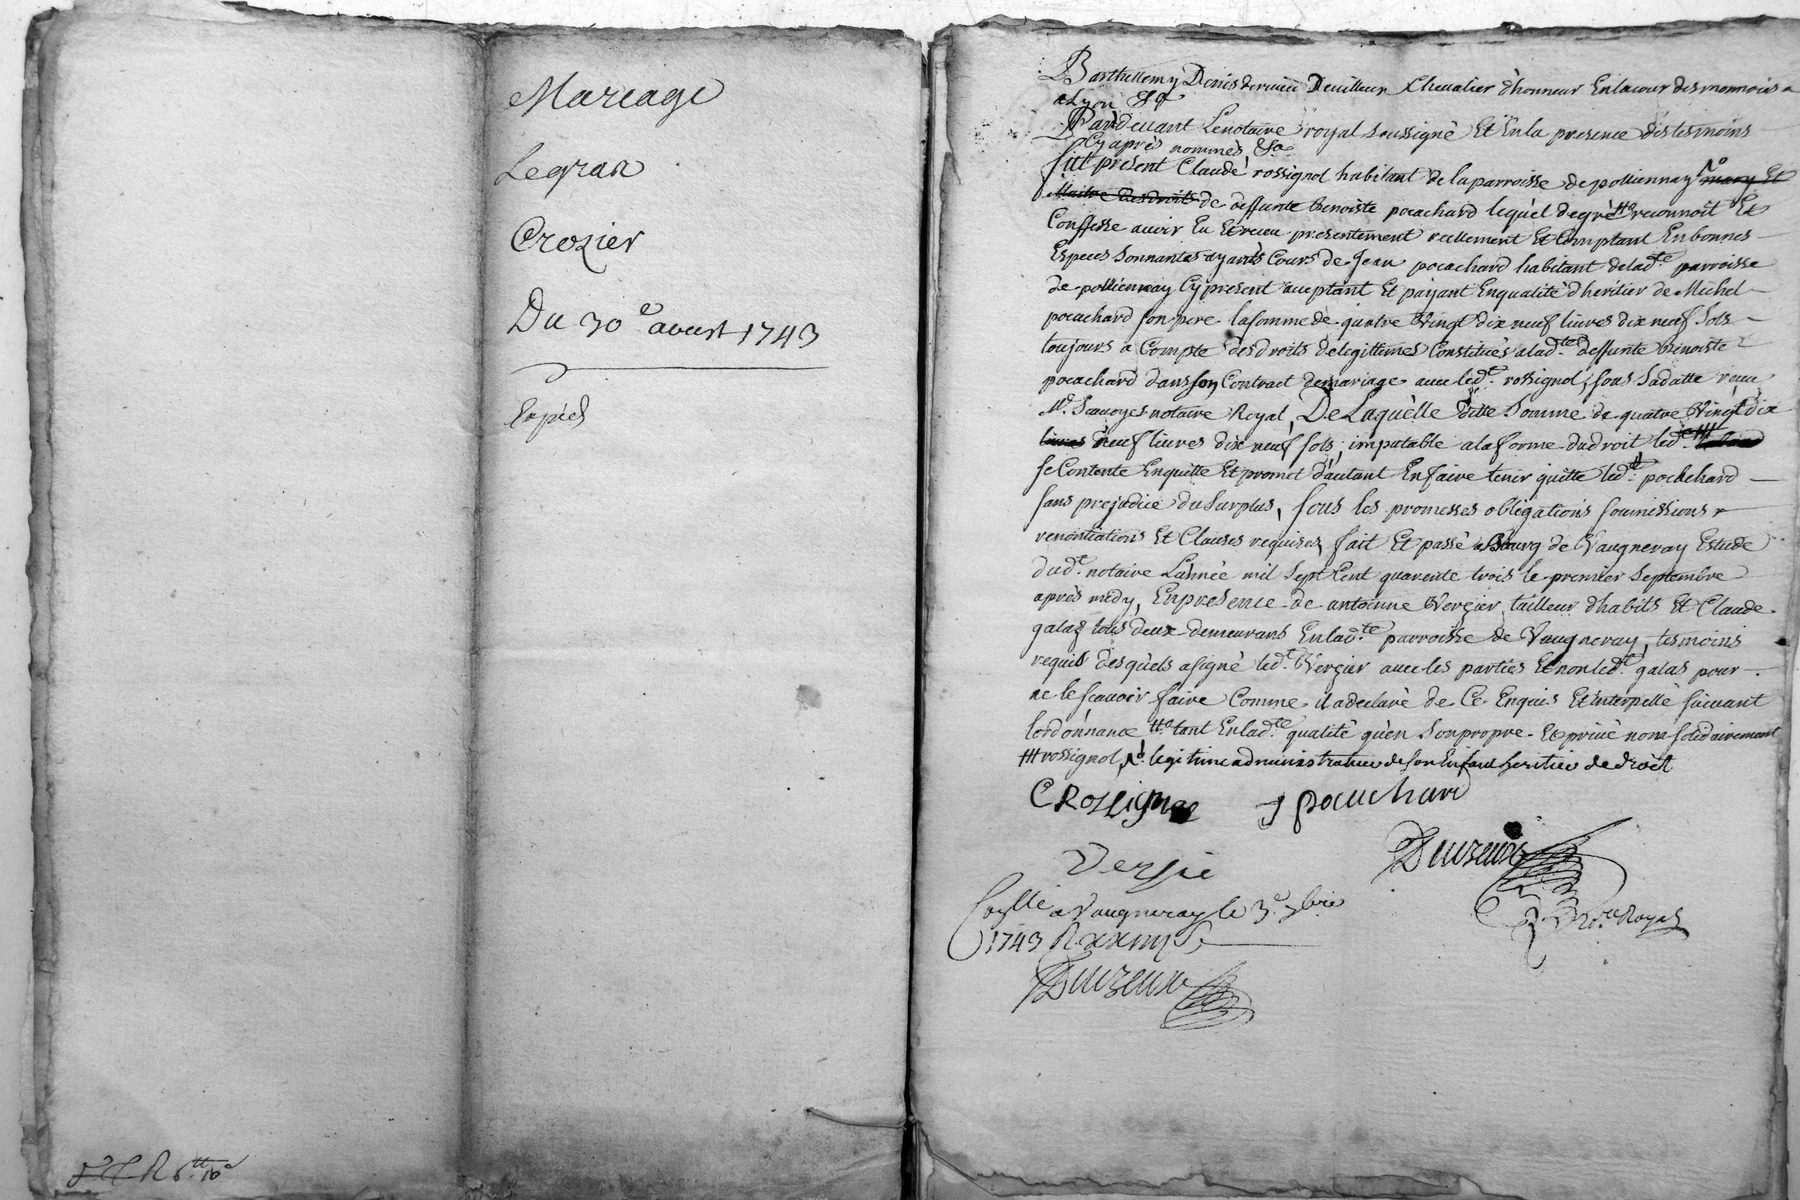 Mareage
Legran
Crozier
Du 30e aoust 1743
Expiéd
Barthellemy Denis dervieu Devilleur Chevalier d'honneur En la cour des monnoies
a Lyon &a
Pardevant Le notaire royal soussigné Et En la presence des tesmoins
Cy après nommés &a
fut present Claude rossignol habitant de la parroisse de pollionnay mary Et
Maitre des droits de deffunte Benoiste pocachard lequel de gré reconnoit Et
Confesse avoir Eu Et receu presentement reellement Et Comptant En bonnes
Especes sonnantes ayants Cours de Jean pocachard habitant de lad.te parroisse
de pollionnay Cy present acceptant Et paÿant En qualité d'heritier de Michel
pocachard son pere la somme de quatre Vingt dix neuf livres dix neuf sols
toujours a Compte des droits de legittimes Constitués a lad.te deffunte Benoiste
pocachard dans son Contract de mariage avec led.t rossignol, sous sa datte receu
M.e notaire Royal, De Laquelle ditte Somme de quatre Vingt dix
livres neuf livres dix neuf sols, imputable a la forme du droit led.t
se Contente En quitte Et promet d'autant En faire tenir quitte led.t pocachard
sans prejudice du surplus, sous les promesses obligations soumissions
renontiations Et Clauses requises, fait Et passé a Bourg de Vaugneray Estude
dud.t notaire L'année mil sept Cent quarente trois le premier septembre
après midy, En presence de antoinne Verçier tailleur d'habits Et Claude
galas tous deux demeurans En lad.te parroisse de Vaugneray, tesmoins
requis desquels a signé led.t Verçier avec les parties Et non led.t galas pour
ne le scavoir faire Comme il a declaré de Ce Enquis Et interpellé suivant
lordonnance tant En lad.te qualité qu'en son propre Et privé nom solidairement
rossignol, legitime administrateur de son Enfant heritier de droit
C Rossignol J pocachard
Versié
No.re Royal
a Vaugneray le 3.e 7bre
1743